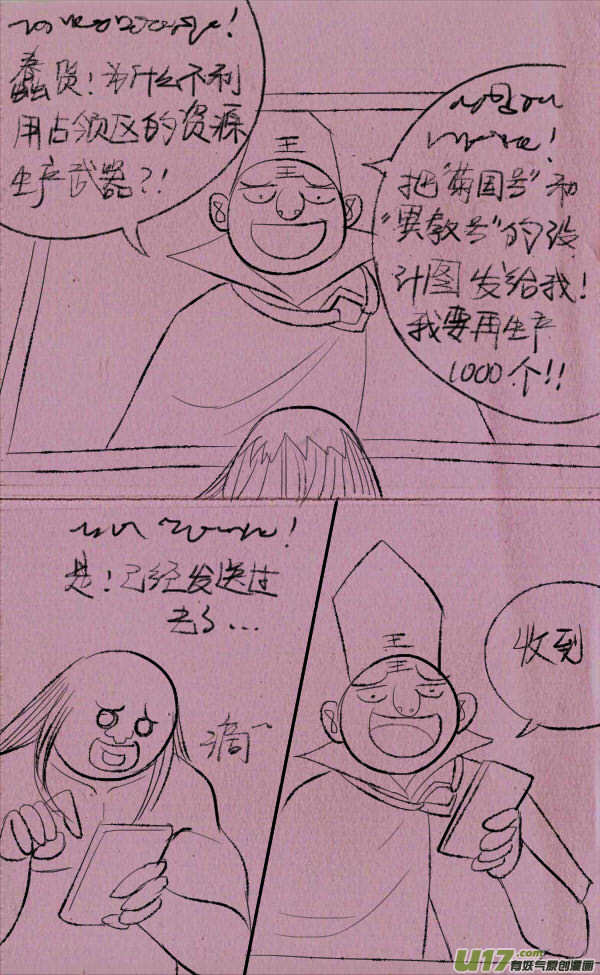 蠢货!为什么不利
用占领区的资源
生产武器?!
把"菊国号"和
"異教号"的设
计图发给我!
我要再生产
1000个!!
是!已经发送过
去了...
收到
滴~
王
王
王
王
U17.com
有妖气原创漫画